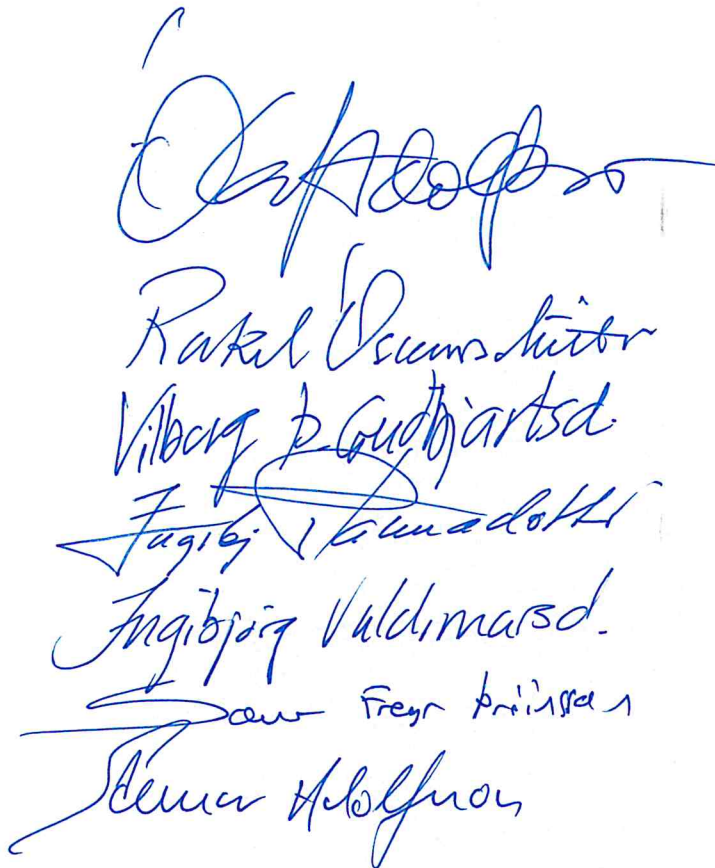 Ólafur Adolfsson
Rakel Óskarsdóttir
Vilborg Þ. Guðbjartsd.
Ingibj Pálmadóttir
Ingibjörg Valdimarsd.
Freyr Þráinsson
Adolfsson